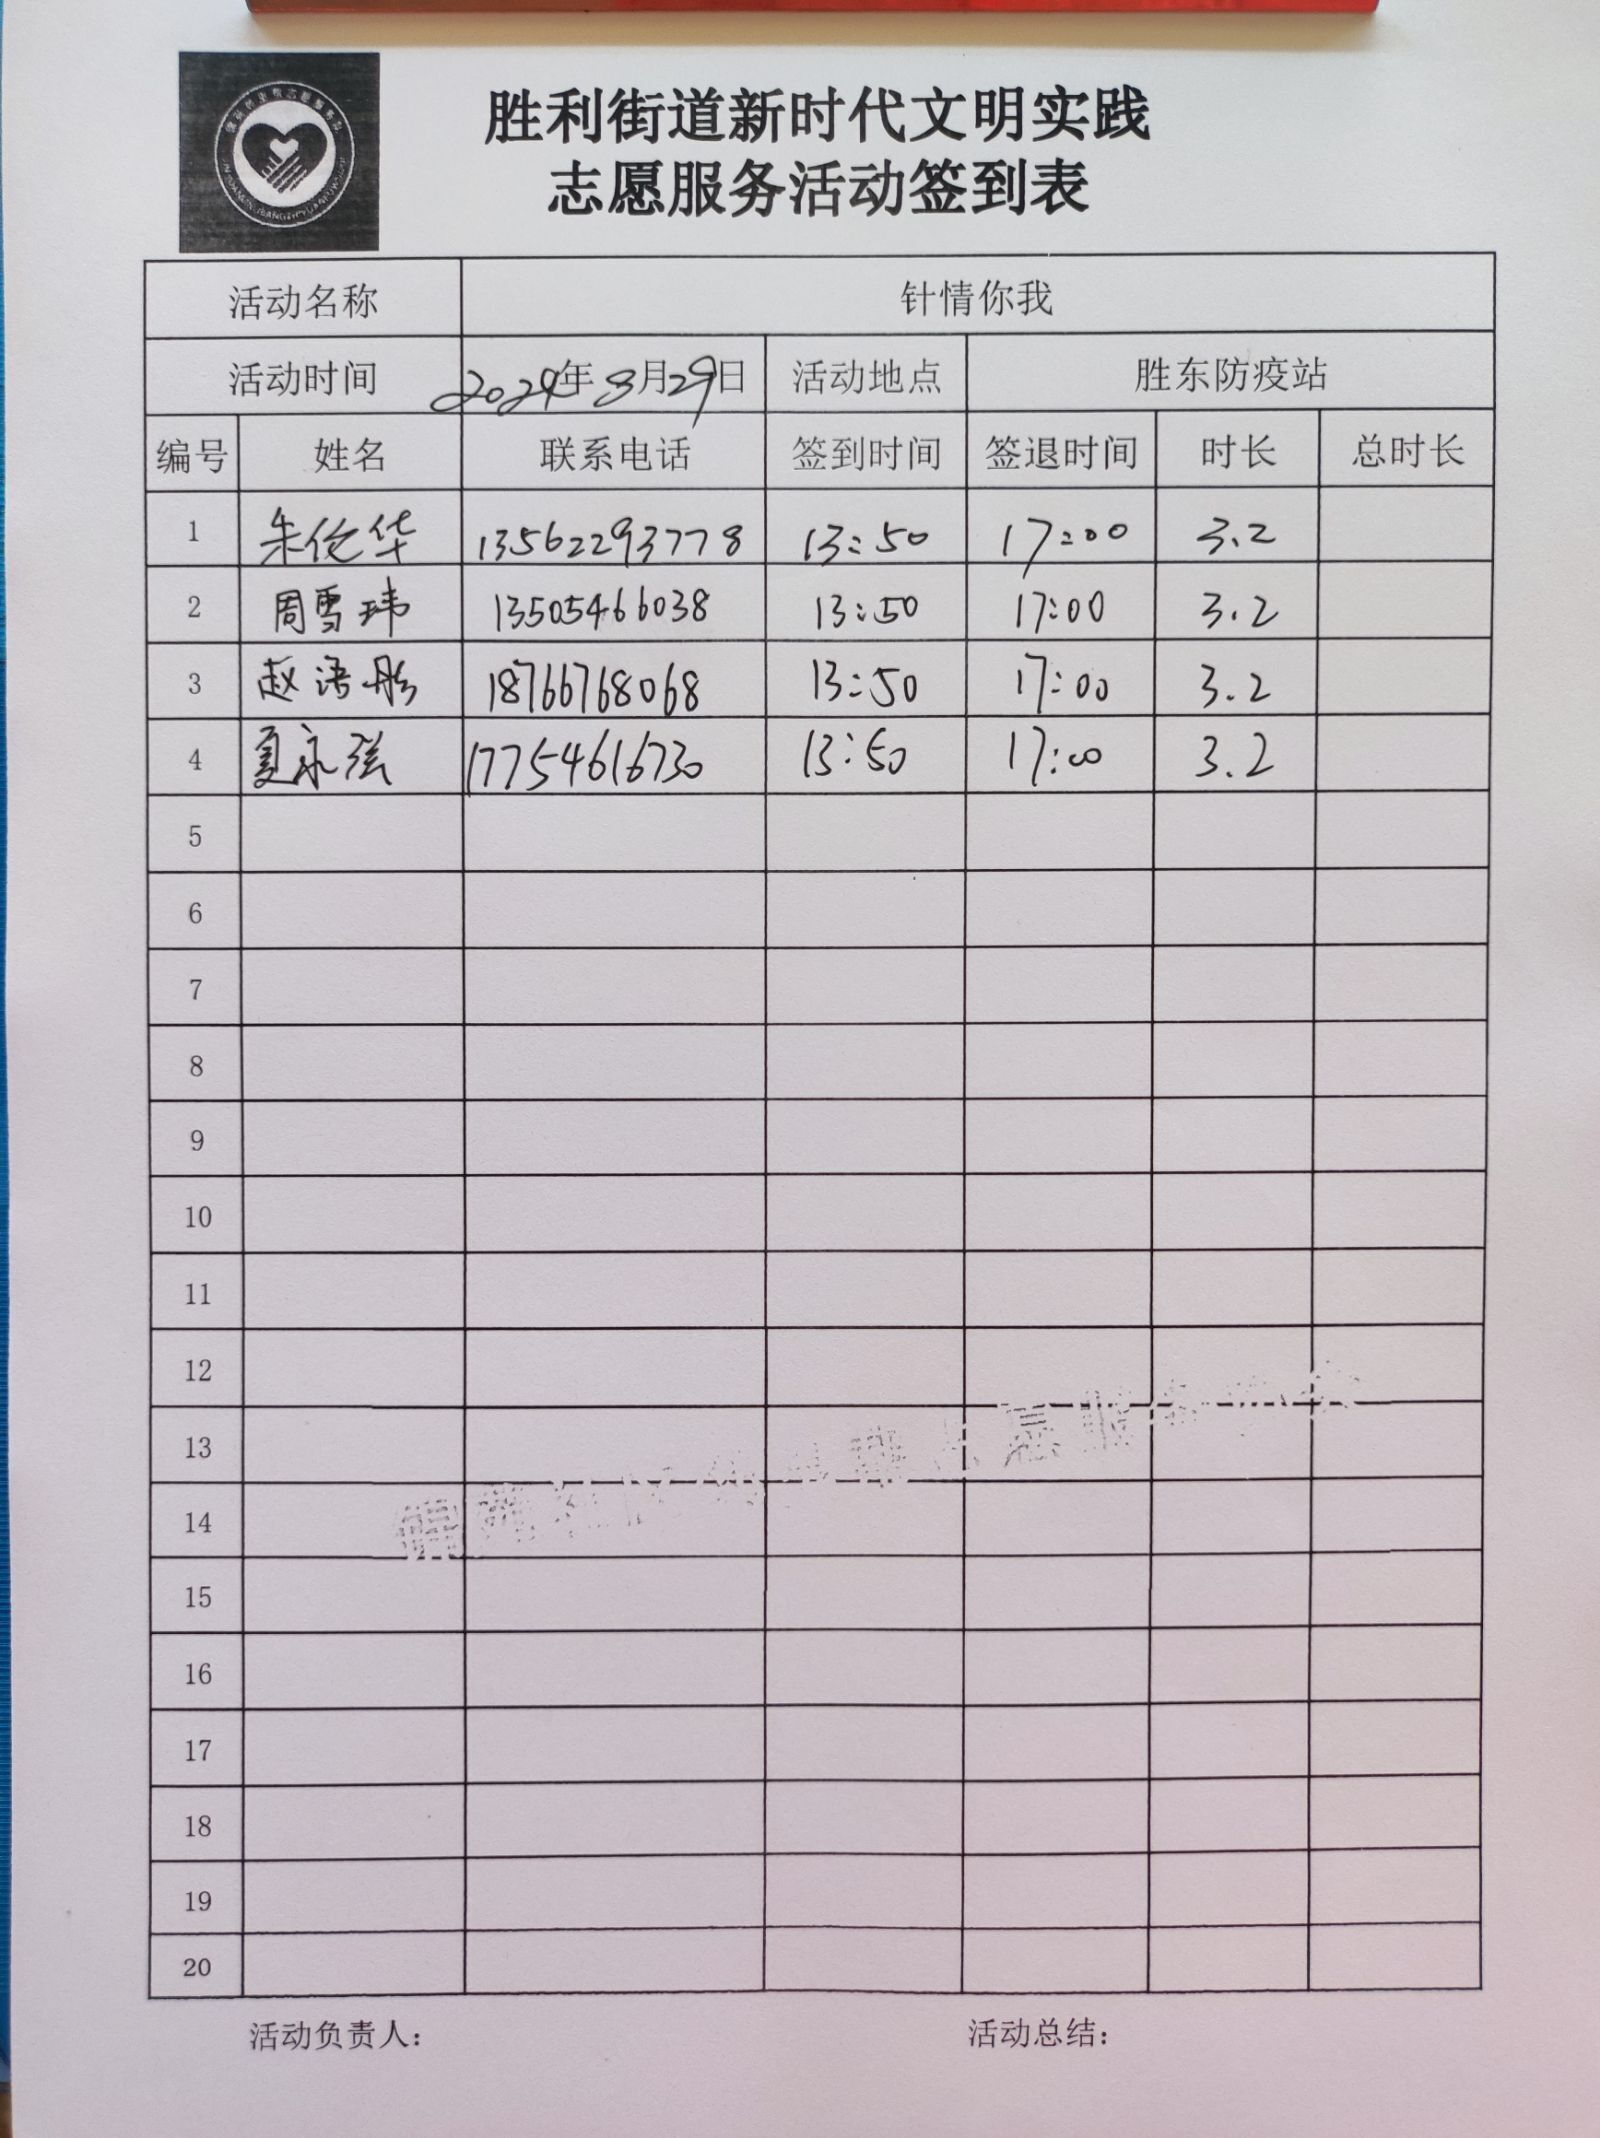 胜利街道新时代文明实践
志愿服务活动签到表
活动名称 针情你我
活动时间 2024年8月29日 活动地点 胜东防疫站
编号 姓名 联系电话 签到时间 签退时间 时长 总时长
1 朱伦华 13562293778 13:50 17:00 3.2
2 周雪玮 13505466038 13:50 17:00 3.2
3 赵 18766768068 13:50 17:00 3.2
4 夏永强 17754616730 13:50 17:00 3.2
5
6
7
8
9
10
11
12
13
14
15
16
17
18
19
20
活动负责人： 活动总结：